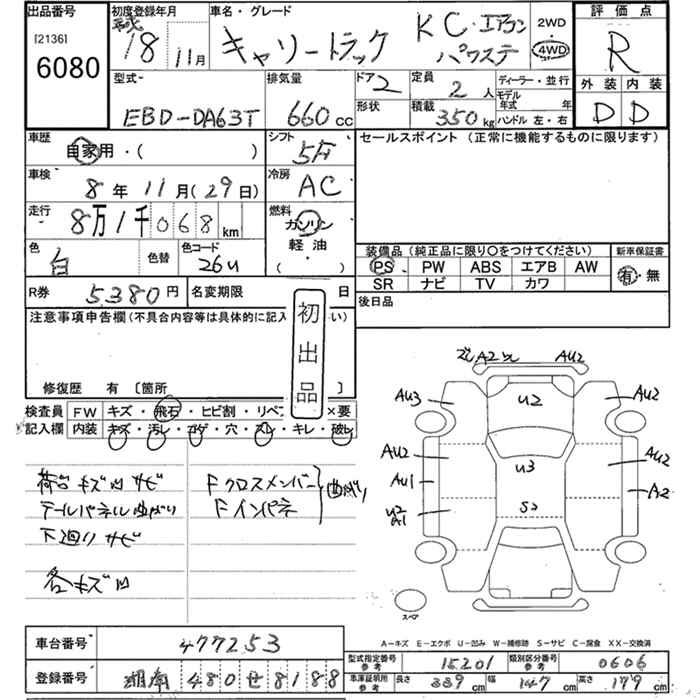 出品番号
[2136]
6080
初度登録年月
平成
18 11月
車名・グレード
キャリートラック
KC・エアコン
パワステ
2WD
・
4WD
評価点
R
外装 内装
D D
型式
EBD-DA63T
排気量
660cc
ドア
2
形状
定員
2人
積載
350kg
ディーラー・並行
モデル年式 年
ハンドル 左・右
車歴
自家用・( )
シフト
5F
車検
8年11月(29日)
冷房
AC
走行
8万1千068km
燃料
ガソリン
軽油
・
( )
色
白
色替
色コード
26U
セールスポイント(正常に機能するものに限ります)
装備品(純正品に限り〇をつけてください) 新車保証書
PS PW ABS エアB AW
SR ナビ TV カワ
有・無
後日品
R券 5380円
名変期限 日
注意事項申告欄(不具合内容等は具体的に記入 い)
初出品
修復歴 有 [箇所
検査員記入欄
FW キズ・飛石・ヒビ割・リペ ×要
内装 キズ・汚レ・コゲ・穴・スレ・キレ・破レ
荷台キズ凹サビ
テールパネル曲がり
下廻りサビ
各キズ凹
Fクロスメンバー
Fインパネ
曲がり
A2 AU2
AU3 U2 AU2
AU2 U3 AU2
AU1 A2
U2 A1 S2
スペア
A-キズ E-エクボ U-凹み W-補修跡 S-サビ C-腐食 XX-交換済
車台番号 477253
登録番号 湘南480せ8188
型式指定番号参考 15201
類別区分番号参考 0606
車庫証明用参考 長さ 339cm 幅 147cm 高さ 179cm